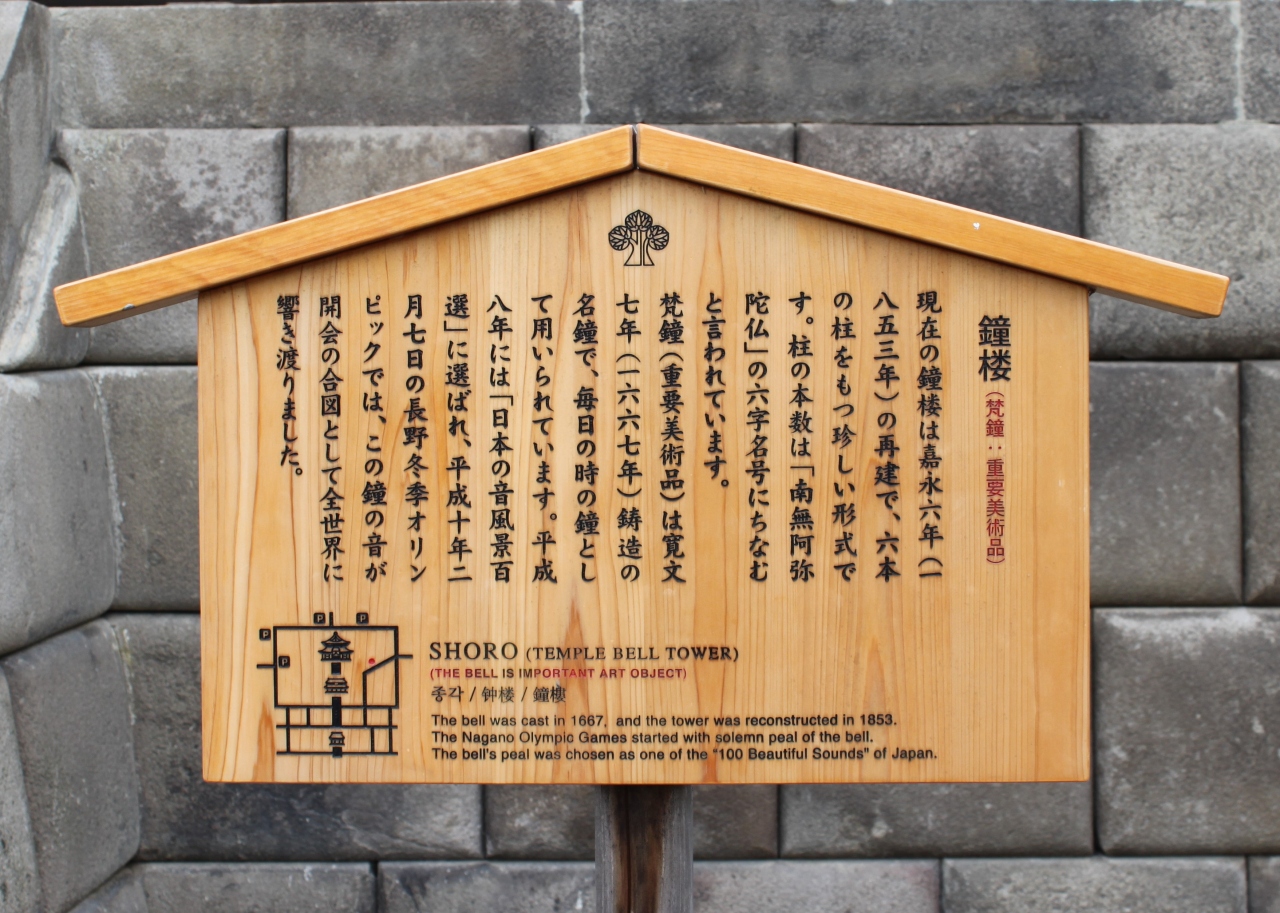 鐘楼(梵鐘：重要美術品)
現在の鐘楼は嘉永六年(一
八五三年)の再建で、六本
の柱をもつ珍しい形式で
す。柱の本数は「南無阿弥
陀仏」の六字名号にちなむ
と言われています。
梵鐘(重要美術品)は寛文
七年(一六六七年)鋳造の
名鐘で、毎日の時の鐘とし
て用いられています。平成
八年には「日本の音風景百
選」に選ばれ、平成十年二
月七日の長野冬季オリン
ピックでは、この鐘の音が
開会の合図として全世界に
響き渡りました。
P P
P
P
SHORO (TEMPLE BELL TOWER)
(THE BELL IS IMPORTANT ART OBJECT)
종각 / 钟楼 / 鐘樓
The bell was cast in 1667, and the tower was reconstructed in 1853.
The Nagano Olympic Games started with solemn peal of the bell.
The bell's peal was chosen as one of the "100 Beautiful Sounds" of Japan.